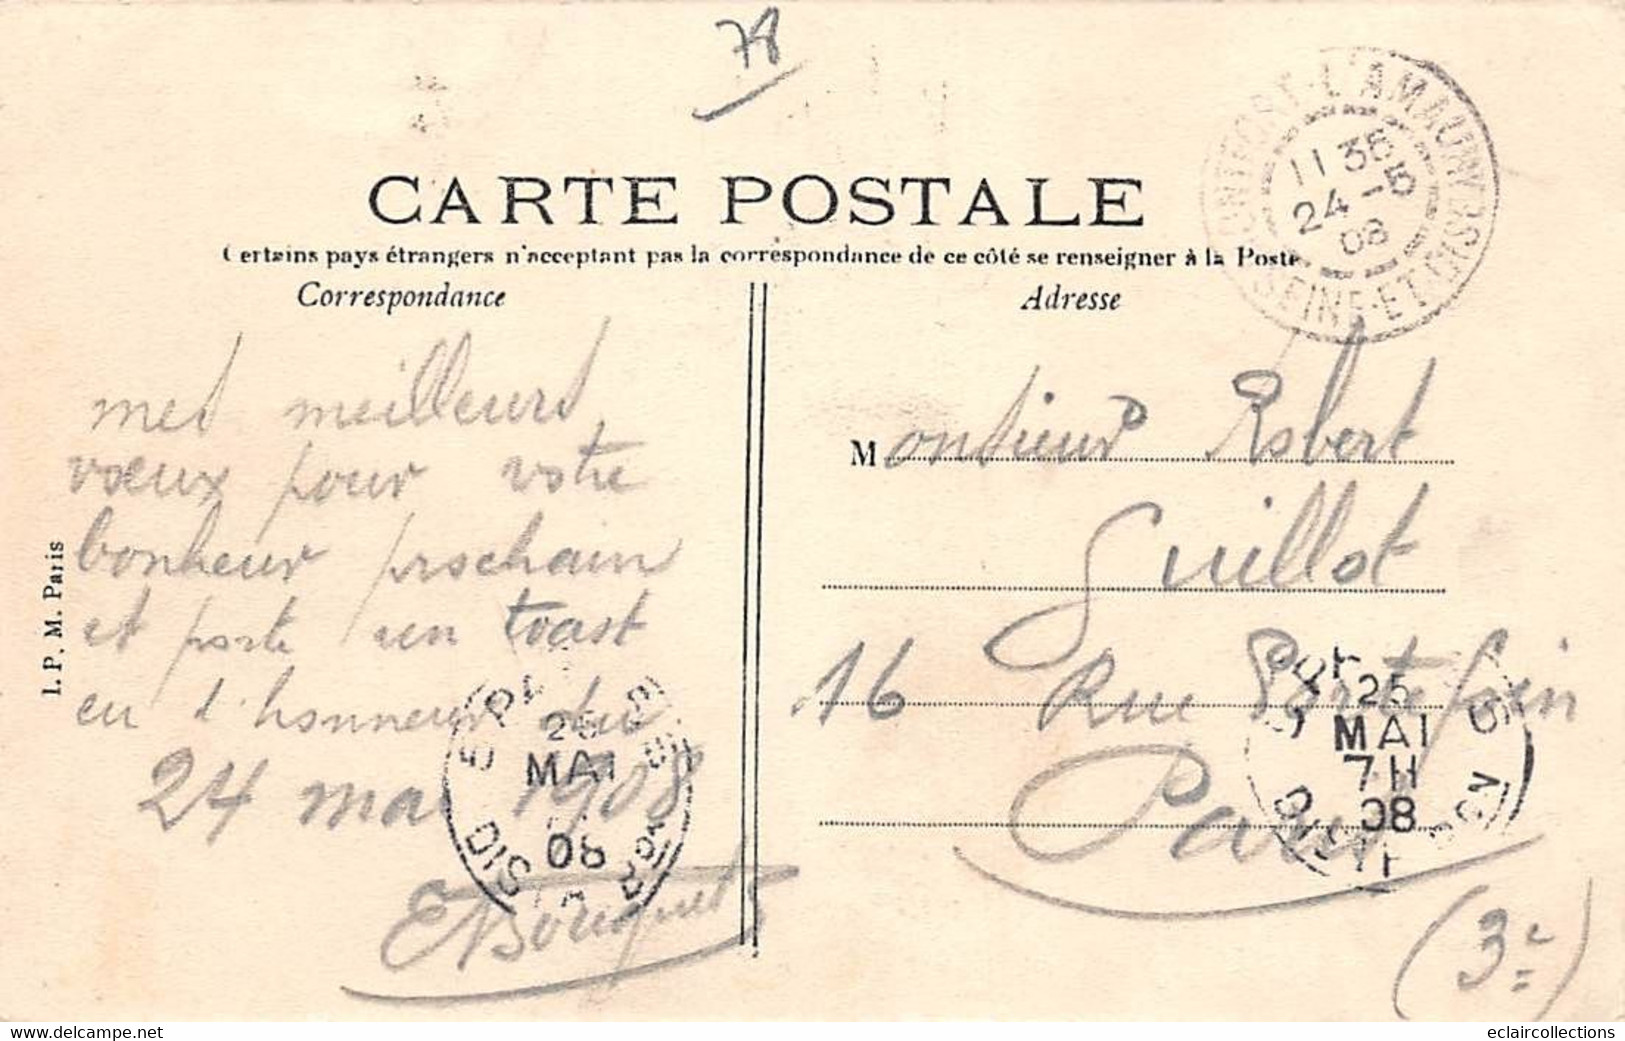 78
CARTE POSTALE
Certains pays étrangers n'acceptant pas la correspondance de ce côté se renseigner à la Poste
Correspondance
Adresse
MONTFORT-L'AMAURY
11 35
24 -5
08
SEINE-ET-OISE
mes meilleurs
vœux pour votre
bonheur prochain
et porte un toast
en l'honneur du
24 mai 1908
EBouquet
Monsieur Robert
Guillot
16 Rue Portefoin
Paris
(3e)
25
MAI
08
25
MAI
7H
08
I. P. M. Paris
eclaircollections